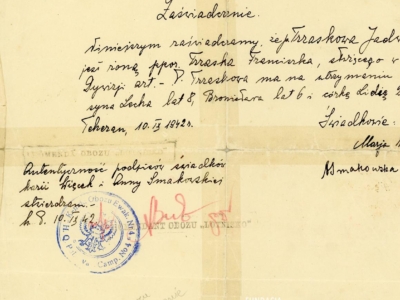 Zaświadczenie.
Niniejszym zaświadczamy, że p. Trzaskowa Jadw
jest żoną ppor. Trzaska Franciszka, służącego w
Dywizji art. - P. Trzaskowa ma na utrzymaniu
syna Lecha lat 8, Bronisława lat 6 i córkę Lidię 2
Teheran, 10.IX 1942 r.
Świadkowie:
Marja
ASmakowska
Autentyczność podpisów świadków
Marii i Anny Smakowskiej
stwierdzam. -
M.P. 10.IX 42
OBOZU
Camp. No 4